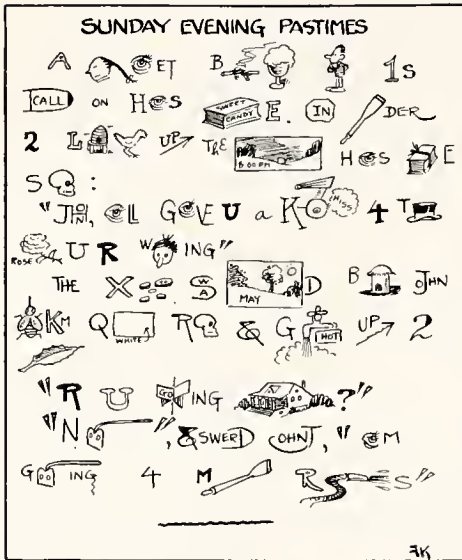 SUNDAY EVENING PASTIMES
A ET B 1S
CALL ON H S SWEET CANDY E. IN DER
2 L UP THE 8:00 PM H S E
S :
"J HN, LL G VE U a K MISS 4 T
ROSE U R W ING"
THE X S WAS MAY D B JHN
KM Q WHITE R & G 1 HOT UP 2
"R U GO ING ?"
"N ", &SWERD OHNJ, " M
G ING 4 M R S"
FK